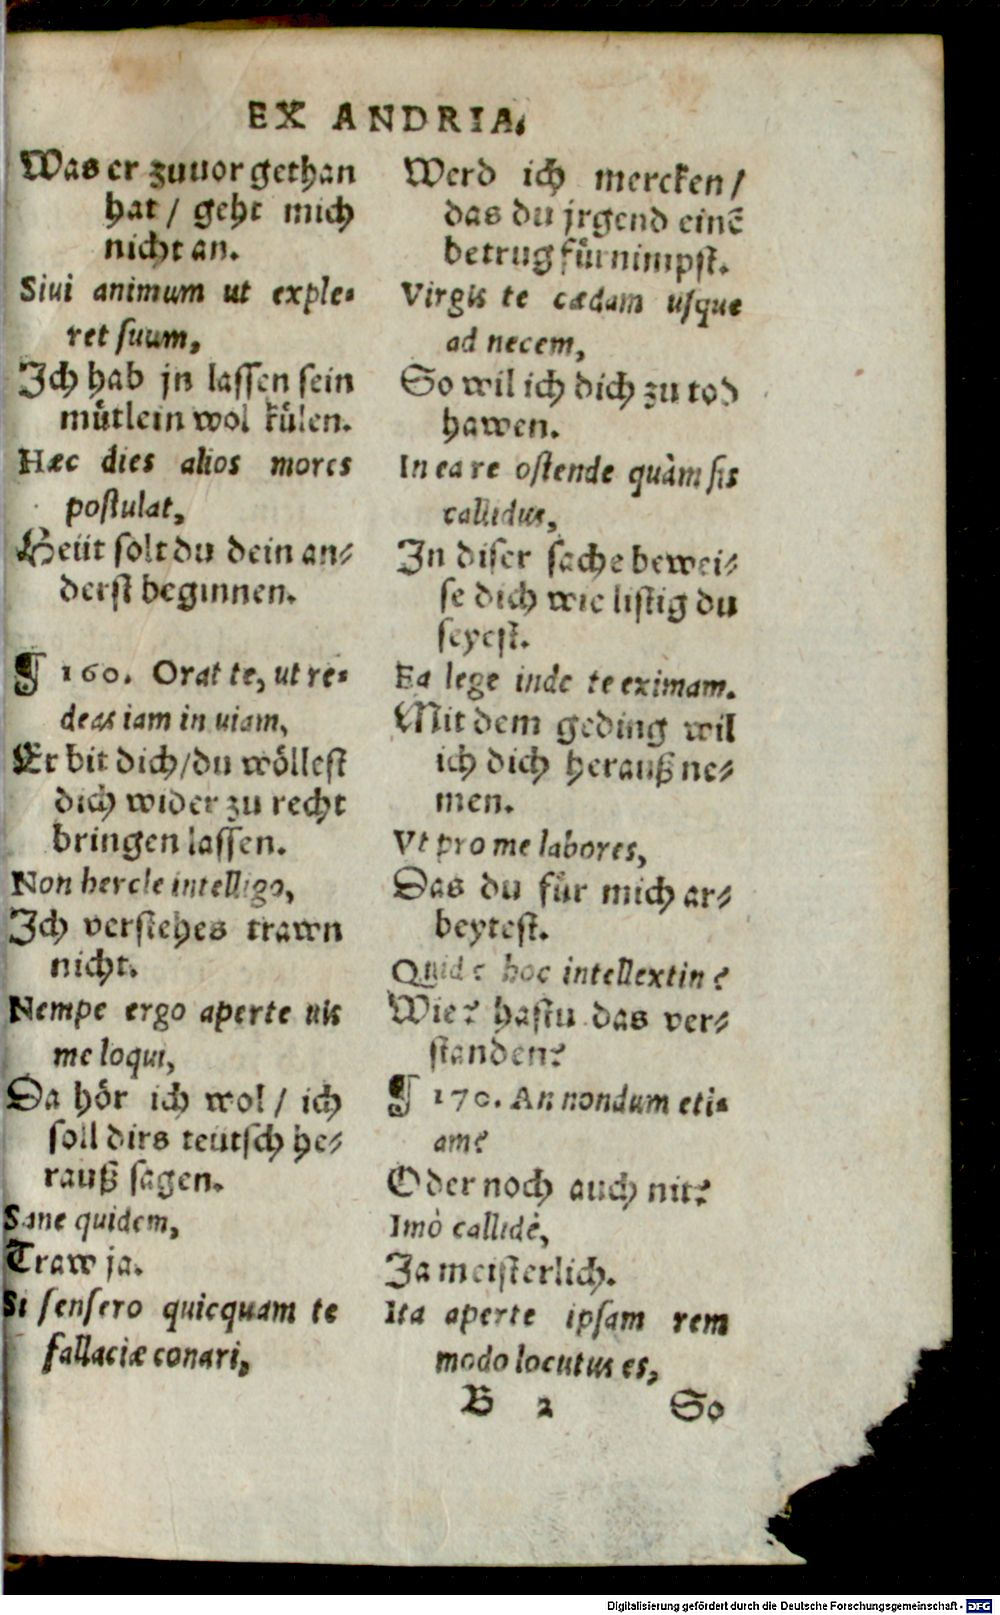 EX ANDRIA.
Was er zuuor gethan
hat / geht mich
nicht an.
Siui animum ut exple-
ret suum,
Ich hab jn lassen sein
muͤtlein wol kuͤlen.
Hæc dies alios mores
postulat,
Heüt solt du dein an-
derst beginnen.
¶ 160. Orat te, ut re-
deas iam in uiam,
Er bit dich/du woͤllest
dich wider zu recht
bringen lassen.
Non hercle intelligo,
Ich verstehes trawn
nicht.
Nempe ergo aperte uis
me loqui,
Da hoͤr ich wol / ich
soll dirs teütsch he-
rauß sagen.
Sane quidem,
Traw ja.
Si sensero quicquam te
fallaciæ conari,
Werd ich mercken /
das du jrgend einẽ
betrug fuͤrnimpst.
Virgis te cædam usque
ad necem,
So wil ich dich zu tod
hawen.
In ea re ostende quàm sis
callidus,
In diser sache bewei-
se dich wie listig du
seyest.
Ea lege inde te eximam.
Mit dem geding wil
ich dich herauß ne-
men.
Vt pro me labores,
Das du fuͤr mich ar-
beytest.
Quid? hoc intellextin?
Wie? hastu das ver-
standen?
¶ 170. An nondum eti-
am?
Oder noch auch nit?
Imò callidè,
Ja meisterlich.
Ita aperte ipsam rem
modo locutus es,
B 2 So
Digitalisierung gefördert durch die Deutsche Forschungsgemeinschaft - DFG